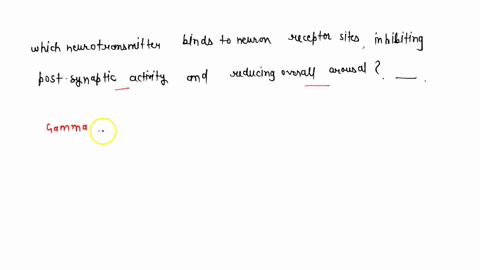 which neurotransmitter binds to neuron receptor sites, inhibiting
post-synaptic activity and reducing overall arousal? __.
Gamma ..